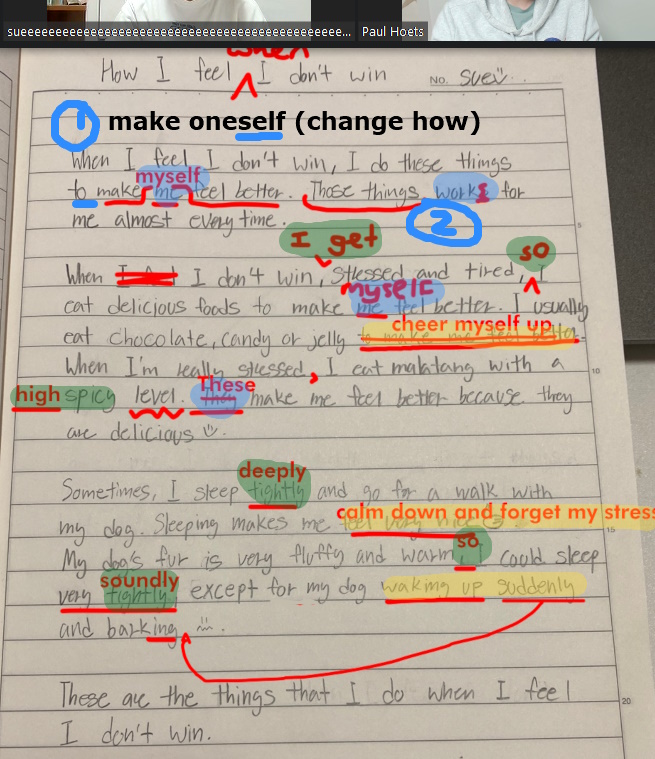 sueeeeeeeeeeeeeeeeeeeeeeeeeeeeeeeeeeeeeeeeeeeeeeee... Paul Hoets
when
How I feel I don't win NO. sue
1 make oneself (change how)
When I feel I don't win, I do these things
myself
to make me feel better. Those things works for
me almost every time. 2
I get so
When I don't win, stressed and tired, I
myself
eat delicious foods to make me feel better. I usually
cheer myself up
eat chocolate, candy or jelly to make me feel better
When I'm really stressed, I eat malatang with a 10
high spicy level. These They make me feel better because they
are delicious
deeply
Sometimes, I sleep tightly and go for a walk with
calm down and forget my stress
my dog. Sleeping makes me feel very nice 15
so
My dog's fur is very fluffy and warm, I could sleep
soundly
very tightly except for my dog waking up suddenly
and barking
These are the things that I do when I feel 20
I don't win.